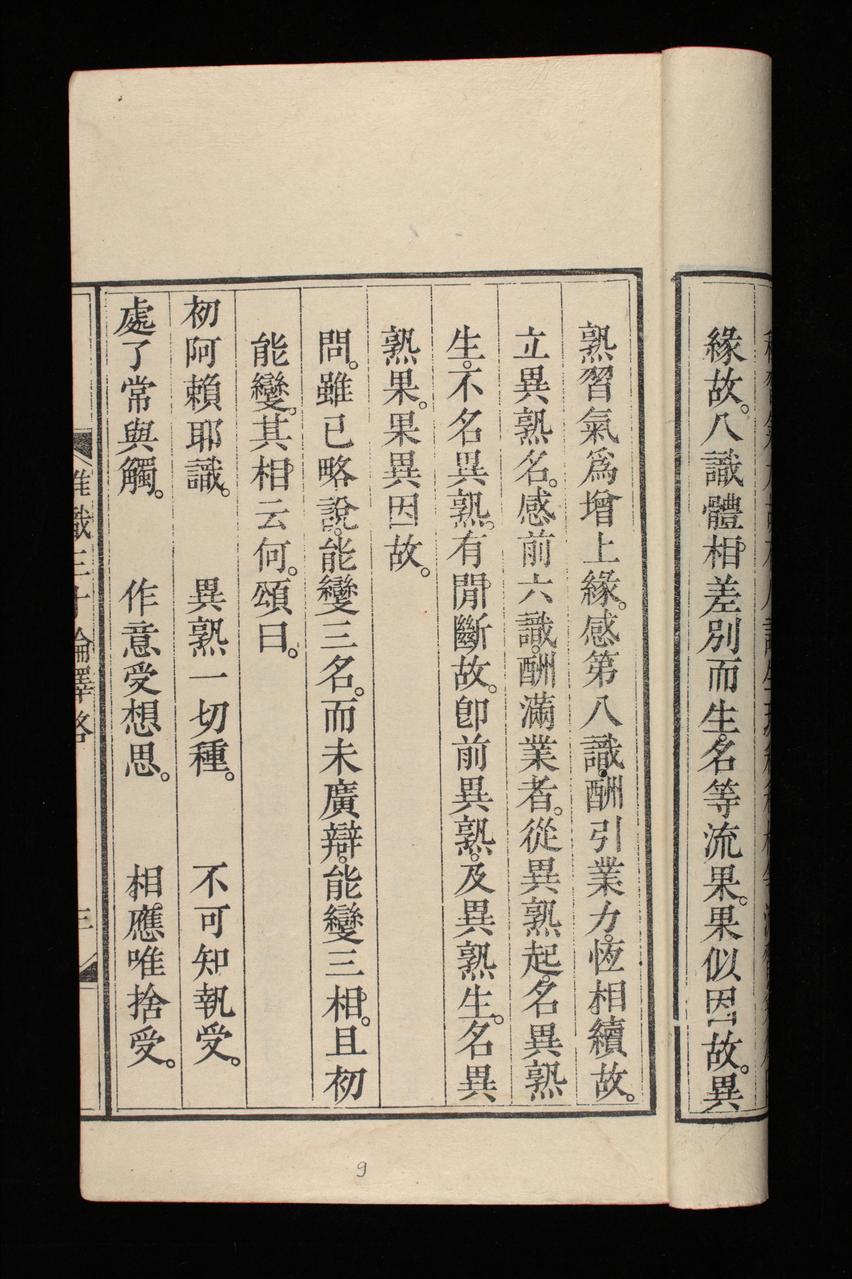 緣故。八識體相差別而生。名等流果。果似因故。異
熟習氣爲增上緣。感第八識。酬引業力。恆相續故。
立異熟名。感前六識。酬滿業者。從異熟起。名異熟
生。不名異熟。有閒斷故。卽前異熟。及異熟生。名異
熟果。果異因故。
問。雖已略說。能變三名。而未廣辯。能變三相。且初
能變。其相云何。頌曰。
初阿賴耶識。 異熟一切種。 不可知執受。
處了常與觸。 作意受想思。 相應唯捨受。
唯識三十論釋略 三
9